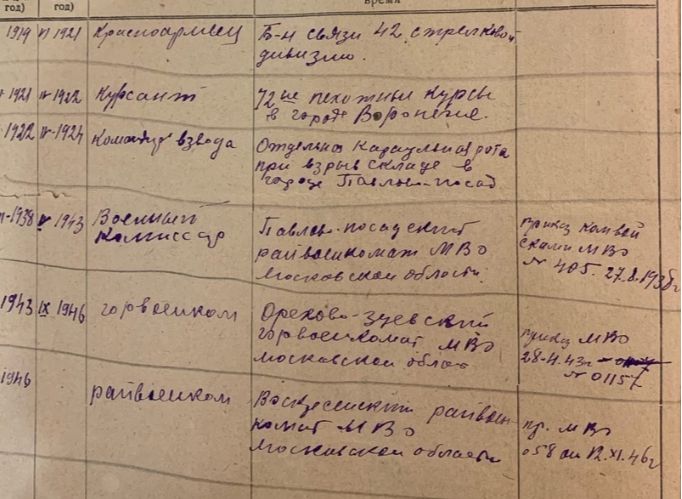 год) год) время
1919 VI 1921 Красноармеец Б-н связи 42 стрелковой
дивизию.
1921 IV-1922 Курсант 72ые пехотные курсы
в городе Воронеже.
1922 IV-1924 Командир взвода Отдельная Караульная рота
при взрыв складе в
городе Павлово-посад
-1938 V 1943 Военный
Комиссар
Павлово-посадский
райвоенкомат МВО
Московской области.
приказ
МВО
№ 405. 27.8.1938г
1943 IX 1946 горвоенком Орехово-зуевский
горвоенкомат МВО
Московской облас
приказ МВО
28-4.43г
№ 01157
1946 райвоенком Воскресенский райвоен
комат МВО
Московской области
пр. МВО
058 от 12.XI.46г